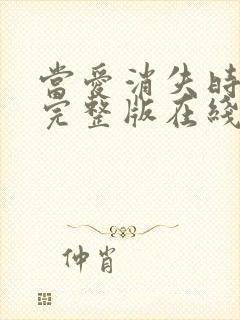 當愛消失時
完整版在綫
仲肖